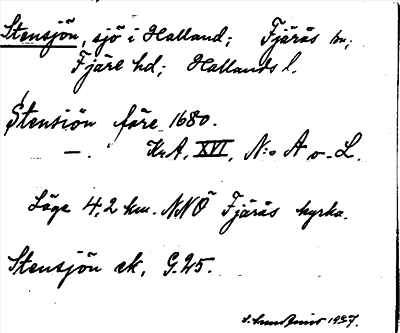 Stensjön, sjö i Halland; Fjärås sn;
Fjäre hd; Hallands l.
Stensiön före 1680.
—. KrA, XVI, N:o A o. L.
Läge 4,2 km. NNÖ Fjärås kyrka.
Stensjön ek. G.25.
1927.